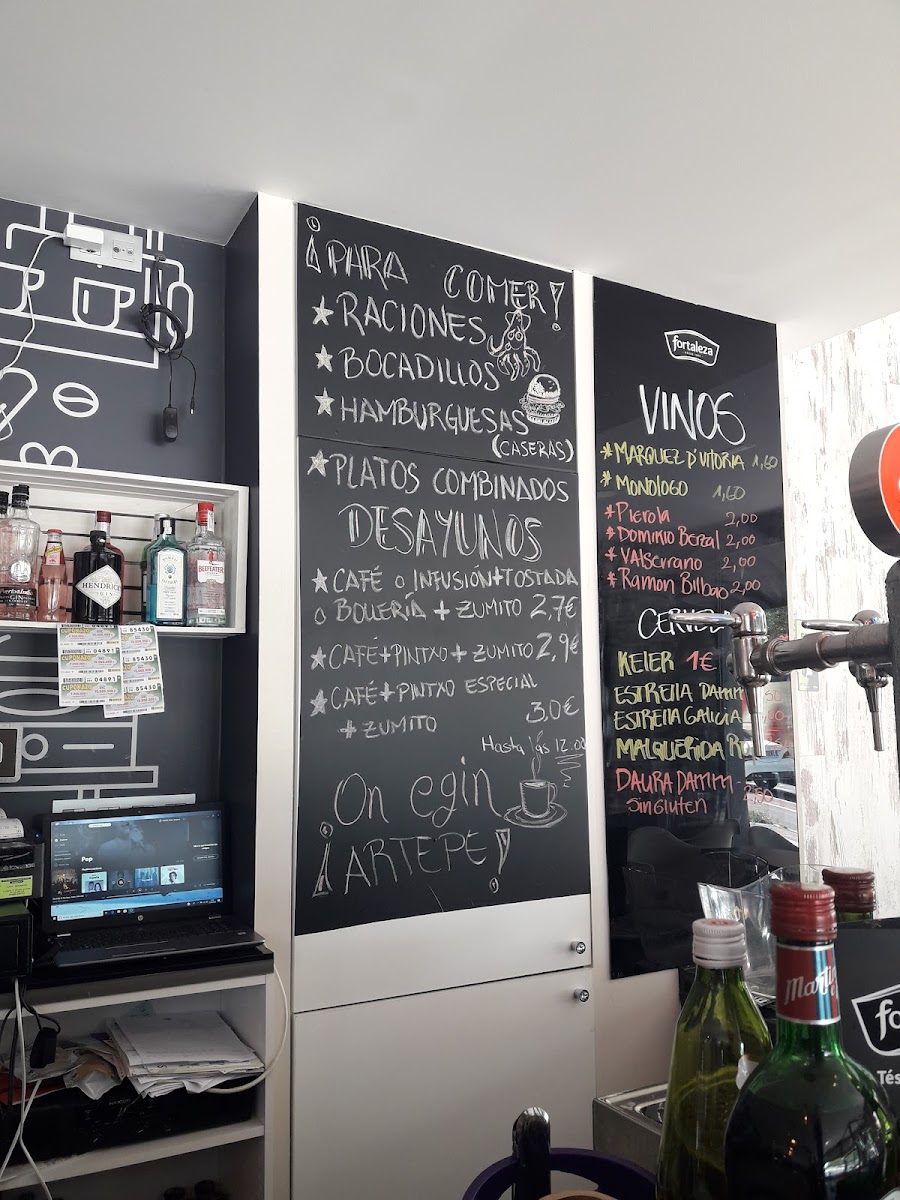 ¡PARA COMER!
RACIONES
BOCADILLOS
HAMBURGUESAS
(CASERAS)
PLATOS COMBINADOS
DESAYUNOS
CAFÉ O INFUSIÓN+TOSTADA
O BOLLERÍA + ZUMITO 2,7€
CAFÉ+PINTXO+ZUMITO 2,9€
CAFÉ+PINTXO ESPECIAL
+ ZUMITO 3,0€
Hasta las 12:00
On egin
¡ARTEPE!
fortaleza
VINOS
* MARQUEZ D'VITORIA 1,60
* MONOLOGO 1,60
* Pierola 2,00
* Dominio Berzal 2,00
* Valserrano 2,00
* Ramon Bilbao 2,00
KELER 1€
ESTRELLA DAMM
ESTRELLA GALICIA
MALQUERIDA
DAURA DAMM 2,50
Sin Gluten
HENDRICK
GIN
BEEFEATER
CUPONAZO
04893
85430
CUPONAZO
04893
85430
CUPONAZO
04893
85430
Pop
hp
Martini
fo
Tés